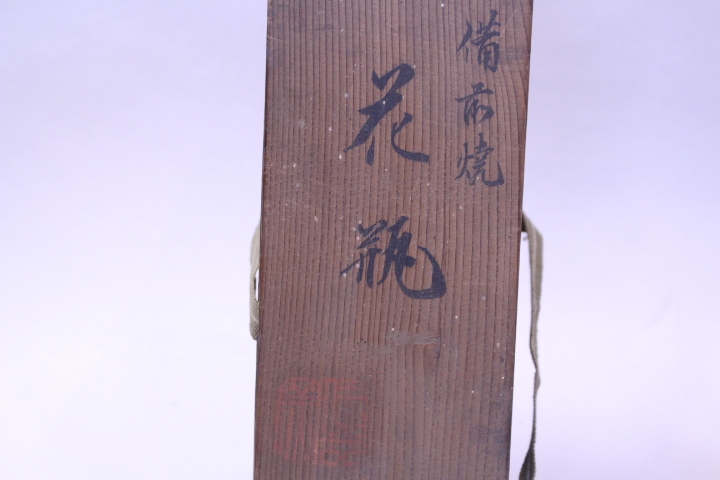 備前焼
花瓶